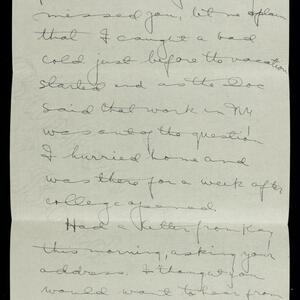 missed you, let me explain
that I caught a bad
cold just before the vacation
started and as the Doc
said that work in NY
was out of the question
I hurried home and
was there for a week after
college opened.
Had a letter from Kay
this morning, asking your
address. I thought you
would want to hear from